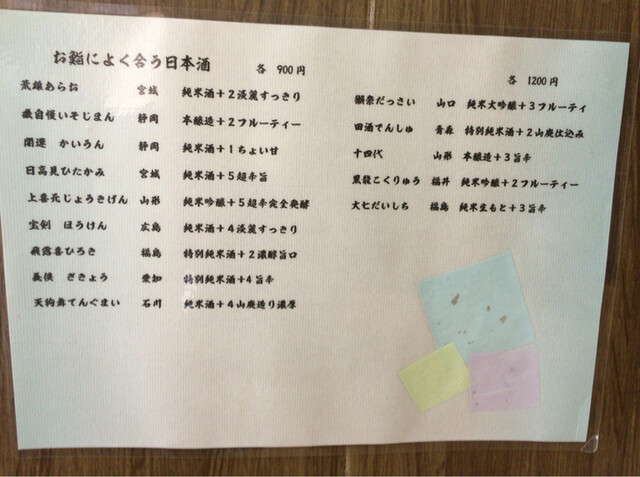 お鮨によく合う日本酒 各 900円
荒雄あらお 宮城 純米酒+2淡麗すっきり
磯自慢いそじまん 静岡 本醸造+2フルーティー
開運 かいうん 静岡 純米酒+1ちょい甘
日高見ひたかみ 宮城 純米酒+5超辛旨
上喜元じょうきげん 山形 純米吟醸+5超辛完全発酵
宝剣 ほうけん 広島 純米酒+4淡麗すっきり
飛露喜ひろき 福島 特別純米酒+2濃醇旨口
義侠 ぎきょう 愛知 特別純米酒+4旨辛
天狗舞てんぐまい 石川 純米酒+4山廃造り濃厚
各 1200円
獺祭だっさい 山口 純米大吟醸+3フルーティ
田酒でんしゅ 青森 特別純米酒+2山廃仕込み
十四代 山形 本醸造+3旨辛
黒龍こくりゅう 福井 純米吟醸+2フルーティー
大七だいしち 福島 純米生もと+3旨辛